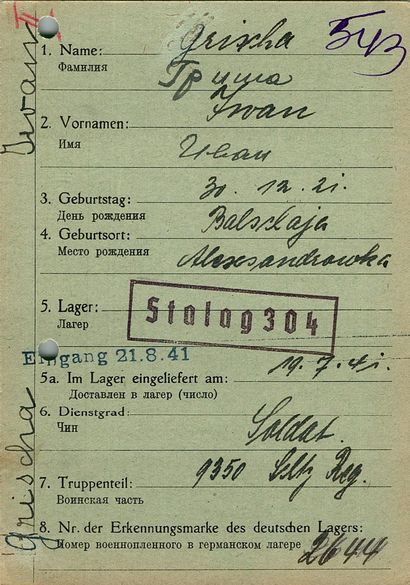 II
543
1. Name: Grischa
Фамилия
Гриша
Iwan
2. Vornamen:
Имя
Иван
3. Geburtstag: 30. 12. 21.
День рождения
Balschaja
4. Geburtsort:
Место рождения
Alexsandrowka
5. Lager: Stalag 304
Лагер
Eingang 21.8.41
19. 7. 41.
5a. Im Lager eingeliefert am:
Доставлен в лагер (число)
6. Dienstgrad: Soldat.
Чин
9350 Reg.
7. Truppenteil:
Воинская часть
8. Nr. der Erkennungsmarke des deutschen Lagers:
Номер военнопленного в германском лагере
2644
Iwan
Grischa